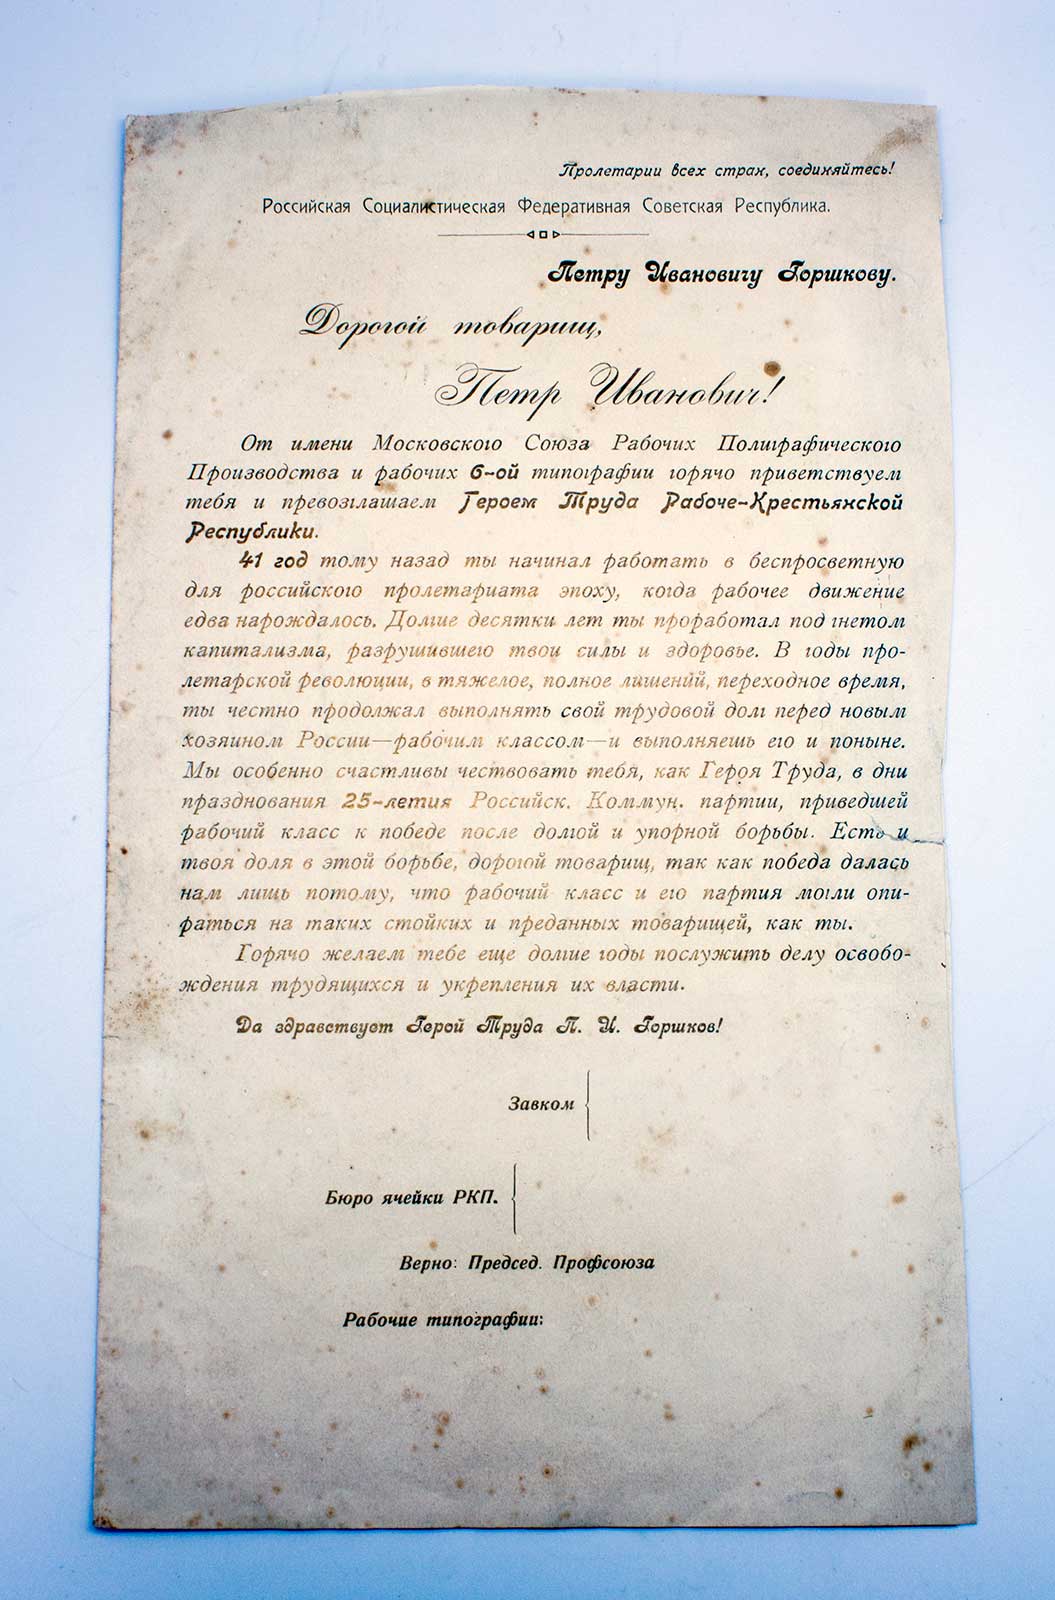 Пролетарии всех стран, соединяйтесь!
Российская Социалистическая Федеративная Советская Республика.
Петру Ивановичу Горшкову.
Дорогой товарищ,
Петр Иванович!
От имени Московского Союза Рабочих Полиграфического
Производства и рабочих 6-ой типографии горячо приветствуем
тебя и превозглашаем Героем Труда Рабоче-Крестьянской
Республики.
41 год тому назад ты начинал работать в беспросветную
для российского пролетариата эпоху, когда рабочее движение
едва нарождалось. Долгие десятки лет ты проработал под гнетом
капитализма, разрушившего твои силы и здоровье. В годы про-
летарской революции, в тяжелое, полное лишений, переходное время,
ты честно продолжал выполнять свой трудовой долг перед новым
хозяином России—рабочим классом—и выполняешь его и поныне.
Мы особенно счастливы чествовать тебя, как Героя Труда, в дни
празднования 25-летия Российск. Коммун. партии, приведшей
рабочий класс к победе после долгой и упорной борьбы. Есть и
твоя доля в этой борьбе, дорогой товарищ, так как победа далась
нам лишь потому, что рабочий класс и его партия могли опи-
раться на таких стойких и преданных товарищей, как ты.
Горячо желаем тебе еще долгие годы послужить делу освобо-
ждения трудящихся и укрепления их власти.
Да здравствует Герой Труда П. И. Горшков!
Завком
Бюро ячейки РКП.
Верно: Председ. Профсоюза
Рабочие типографии: